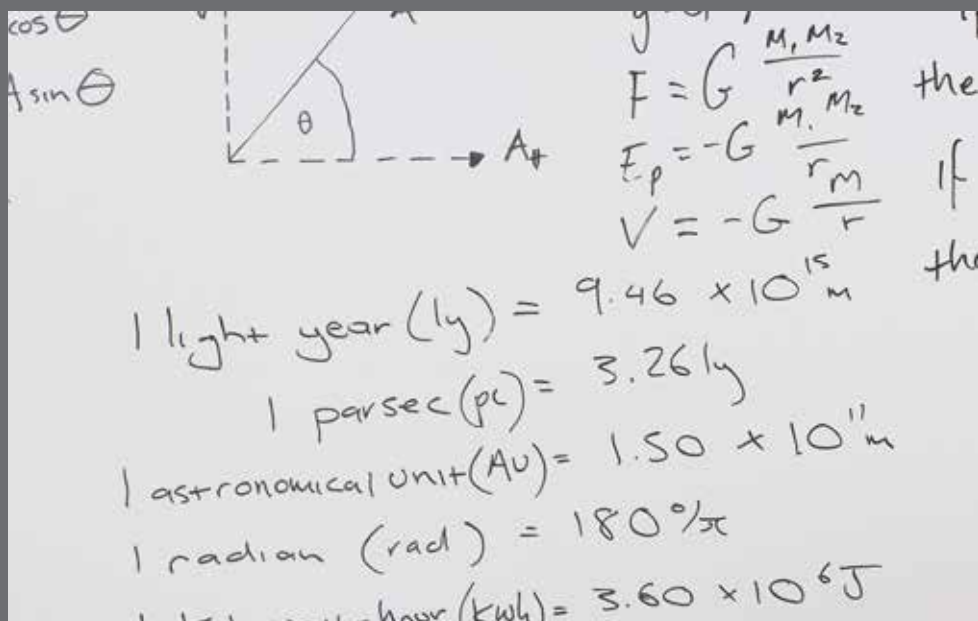 cos θ
A sin θ
θ
A
F = G M₁ M₂ / r²
the
E_p = -G M₁ M₂ / r
If
V = -G M / r
the
1 light year (ly) = 9.46 × 10¹⁵ m
1 parsec (pc) = 3.26 ly
1 astronomical unit (AU) = 1.50 × 10¹¹ m
1 radian (rad) = 180°/π
hour (kwh) = 3.60 × 10⁶ J